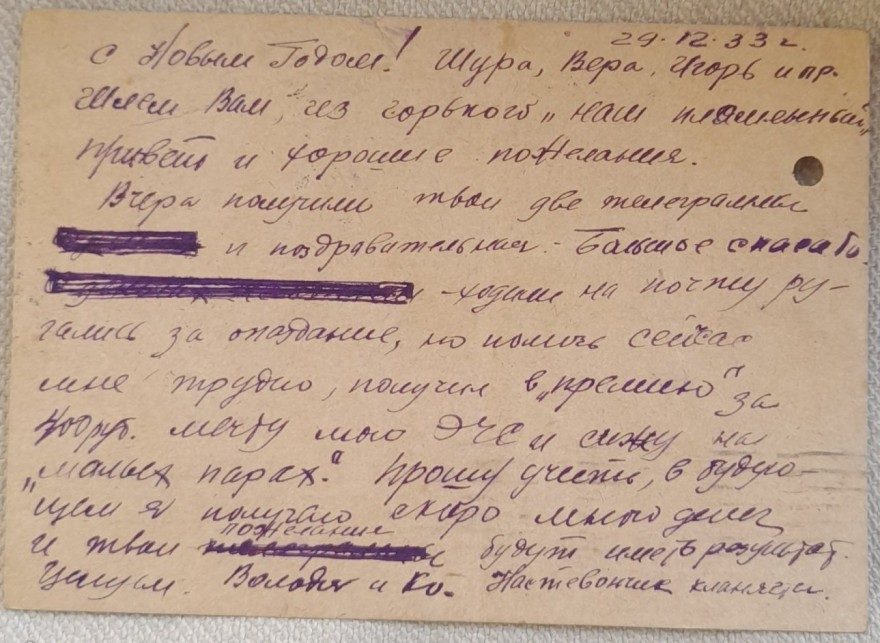 29.12.33 г.
С Новым Годом! Шура, Вера, Игорь и пр.
Шлем Вам, из Горького „наш пламенный"
привет и хорошие пожелания.
Вчера получили твои две телеграммы
и поздравительная. - Большое спасибо.
-ходили на почту ру-
гались за опоздание, но помочь сейчас
мне трудно, получил в „премию" за
400 рб. мечту мою ЭЧС и сижу на
„малых парах". Прошу учесть, в буду-
щем я получаю скоро много денег
пожелания
и твои будут иметь результат.
Целуем. Володя и Ко. кланяется.